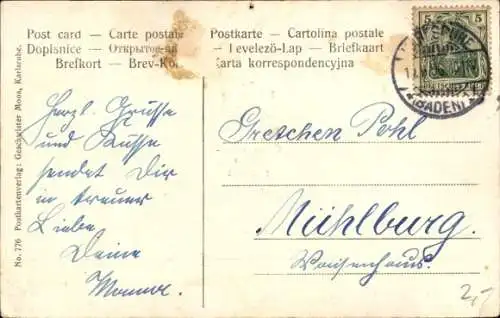 Post card — Carte postale
Dopisnice — Открытое
Brefkort — Brev-Ko
Postkarte — Cartolina postale
Levelező-Lap — Briefkaart
Karta korrespondencyjna
5 5
(BADEN)
Herzl. Grüsse
und Küsse
sendet Dir
in treuer
Liebe
Deine
Gretchen Pohl
Mühlburg.
Waisenhaus.
2,-
No. 776 Postkartenverlag: Geschwister Moos, Karlsruhe.